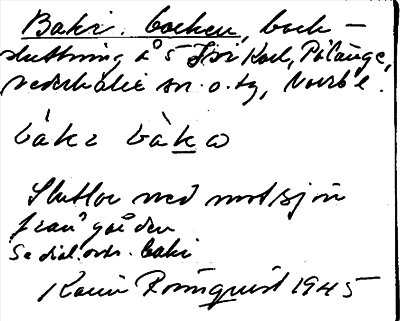 Baki. backen, back-
sluttning å S Kal, Pålänge,
Nederkalix sn. o. tg, Norrb l.
bàkɩ bàkɷ
Sluttar ned mot sjön
från gården
Se dial.ordr. baki
Karin Rönnquist 1945